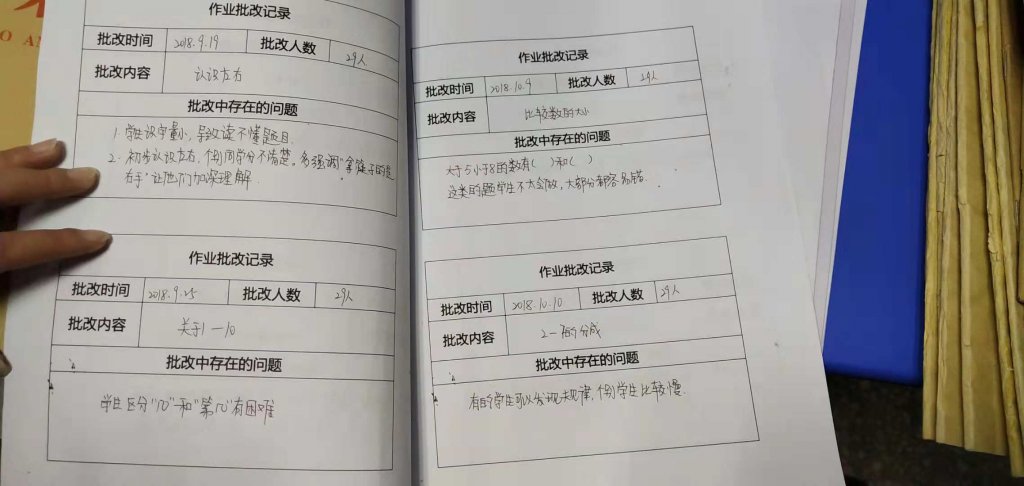 作业批改记录
批改时间 2018.9.19 批改人数 29人
批改内容 认识左右
批改中存在的问题
1. 学生识字量小，导致读不懂题目.
2. 初步认识左右，个别同学分不清楚。多强调“拿筷子的是
右手”让他们加深理解.
作业批改记录
批改时间 2018.9.25 批改人数 29人
批改内容 关于1—10
批改中存在的问题
学生区分“几”和“第几”有困难
作业批改记录
批改时间 2018.10.9 批改人数 29人
批改内容 比较数的大小
批改中存在的问题
大于5小于8的数有( )和( )
这类的题学生不太会做，大部分都容易错.
作业批改记录
批改时间 2018.10.10 批改人数 29人
批改内容 2—的分成
批改中存在的问题
有的学生可以发现规律，个别学生比较慢.